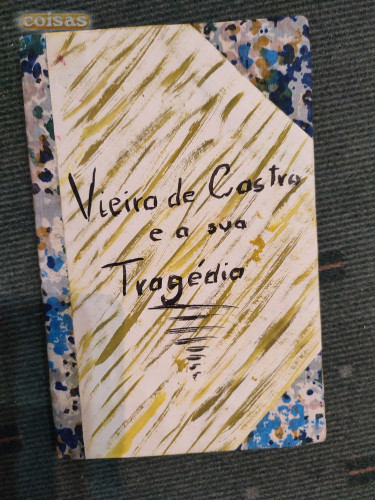 coisas
Vieira de Castro
e a sua
Tragédia